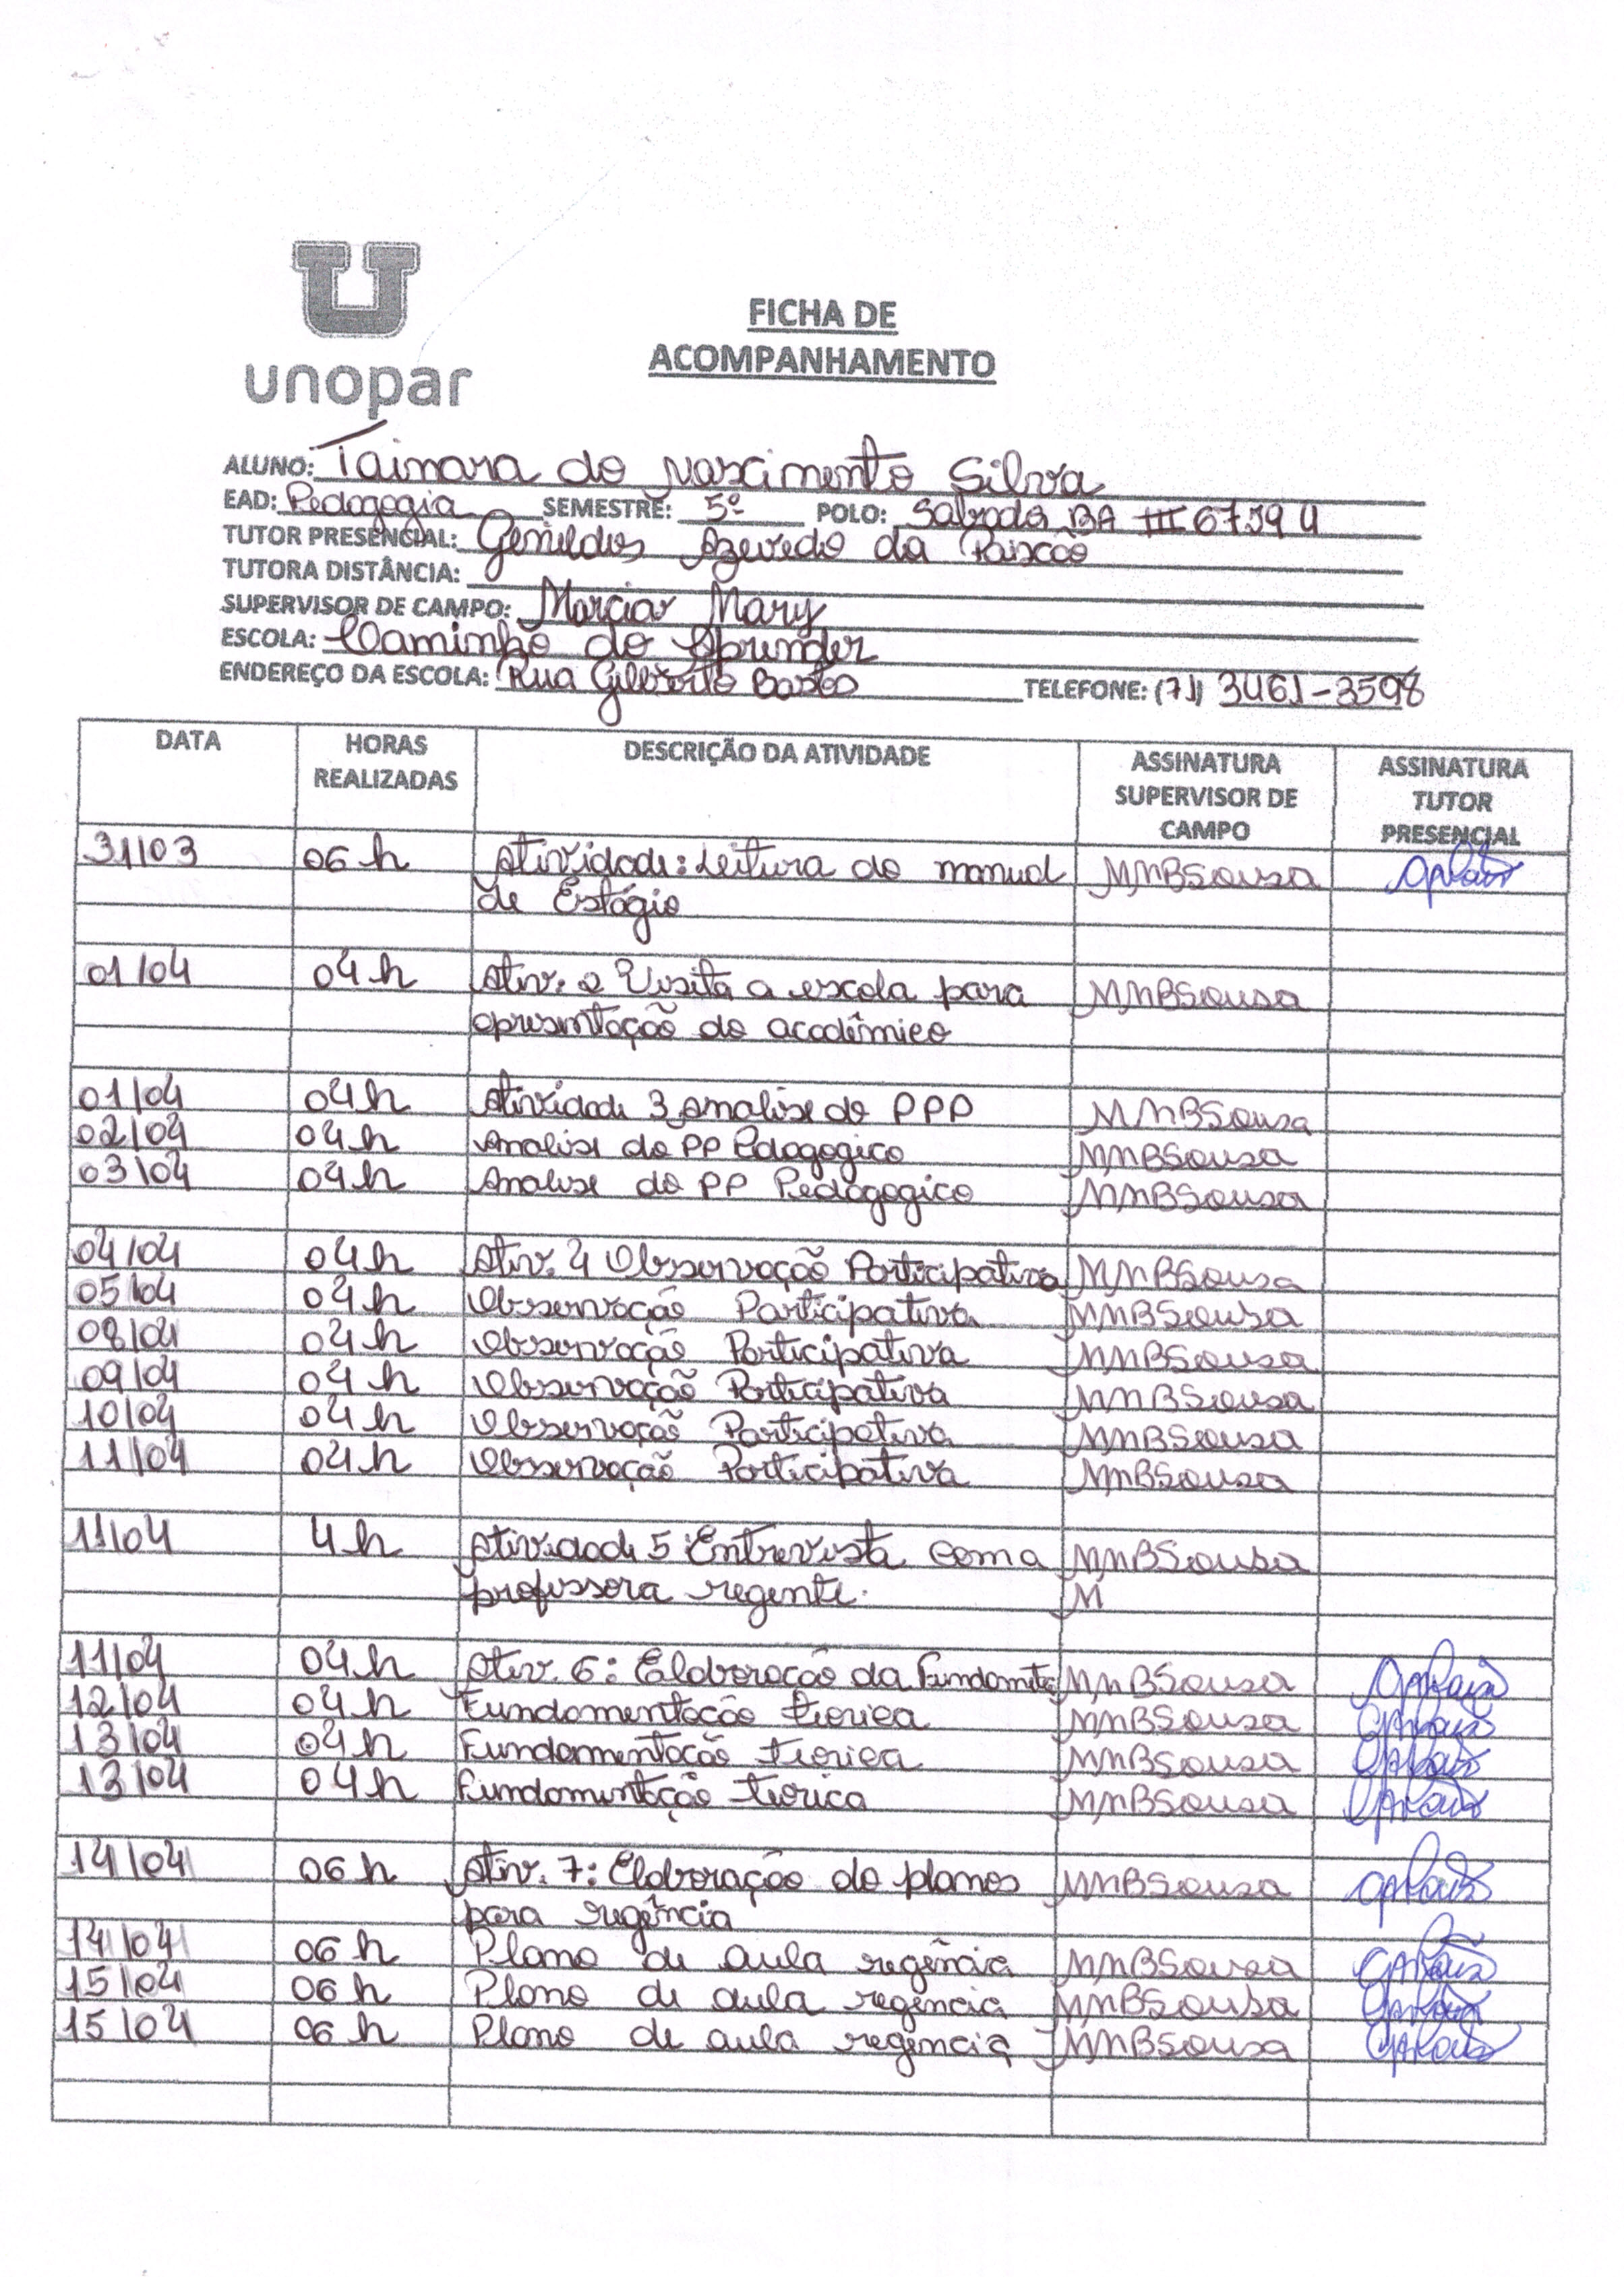 unopar
FICHA DE
ACOMPANHAMENTO
ALUNO: Tainara do Nascimento Silva
EAD: Pedagogia SEMESTRE: 5º POLO: Salvador BA III
TUTOR PRESENCIAL: Azevedo da Paixão
TUTORA DISTÂNCIA:
SUPERVISOR DE CAMPO: Marcia Mary
ESCOLA: Caminho do Aprender
ENDEREÇO DA ESCOLA: Rua Gilberto Bastos TELEFONE: (71) 3461-3598
DATA HORAS REALIZADAS DESCRIÇÃO DA ATIVIDADE ASSINATURA SUPERVISOR DE CAMPO ASSINATURA TUTOR PRESENCIAL
31/03 06 h Atividade: Leitura do manual MMBSousa
de Estágio
01/04 04 h Ativ. 2 Visita a escola para MMBSousa
apresentação do acadêmico
01/04 04h Atividade 3 Analise do PPP MMBSousa
02/04 04h Analise do PP Pedagogico MMBSousa
03/04 04h Analise do PP Pedagogico MMBSousa
04/04 04h Ativ. 4 Observação Participativa MMBSousa
05/04 04h Observação Participativa MMBSousa
08/04 04h Observação Participativa MMBSousa
09/04 04h Observação Participativa MMBSousa
10/04 04h Observação Participativa MMBSousa
11/04 04h Observação Participativa MMBSousa
11/04 4h Atividade 5 Entrevista com a MMBSousa
professora regente. M
11/04 04h Ativ. 6: Elaboração da MMBSousa
12/04 04h Fundamentação teorica MMBSousa
13/04 04h Fundamentação teorica MMBSousa
13/04 04h Fundamentação teorica MMBSousa
14/04 06h Ativ. 7: Elaboração do planos MMBSousa
para regência
14/04 06h Plano de aula regência MMBSousa
15/04 06h Plano de aula regência MMBSousa
15/04 06h Plano de aula regência MMBSousa